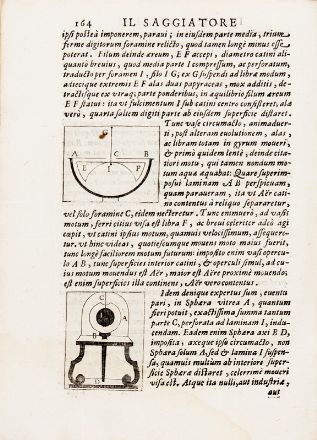 164 IL SAGGIATORE
ipsi posteà imponerem, paraui; in eiusdem parte media, trium
ferme digitorum foramine relicto, quod tamen longè minus esse
poterat. Filum deinde æreum, E F accepi, diametro catini ali-
quanto breuius, quod media parte I compressum, ac perforatum,
traducto per foramen I, filo I G; ex G suspendi ad libræ modum,
adiecique extremis E F alas duas papyraceas, mox additis, de-
tractisque ex vtraq; parte ponderibus, in æquilibrio filum æreum
E F statui: ita vt fulcimentum I sub catini centro consisteret, alæ
verò, quarta saltem digiti parte ab eiusdem superficie distaret.
Tunc vase circumacto, animaduer-
ti, post alteram euolutionem, alas,
ac libram totam in gyrum moueri,
& primò quidem lentè, deinde cita-
tiori motu, qui tamen nondum mo-
tum aquæ æquabat: Quare superim-
posui laminam A B perspicuam,
quam paraueram, ita vt Aër catino
contentus à reliquo separaretur,
vel solo foramine C, eidem necteretur. Tunc enimuerò, ad vasis
motum, ferri citius visa est libra F, ac breui celeriter adeò agi
cæpit, vt catini ipsius motum, quamuis velocissimum, assequere-
tur. vt hinc videas, quotiescumque mouens moto maius fuerit,
tunc longè faciliorem motum futurum: imposito enim vasi opercu-
lo A B, tunc superficies interior catini, & operculi simul, ad cu-
ius motum mouendus est Aër, maior est Aëre proximè mouendo;
est enim superficies illa continens, Aër verò contentus.
Idem denique expertus sum, euentu
pari, in Sphæra vitrea A, quantum
fieri potuit, exactissima summa tantum
parte C, perforata ad laminam I, indu-
cendam. Eadem enim Sphæra axi E D,
imposita, axeque ipso circumacto, non
Sphæra solum A, sed & lamina I suspen-
sa, quamuis multùm ab interiore superfi-
cie Sphæra distaret, celerrimè moueri
visa est. Atque ita nulli, aut industria,
aut
A C B
E I F